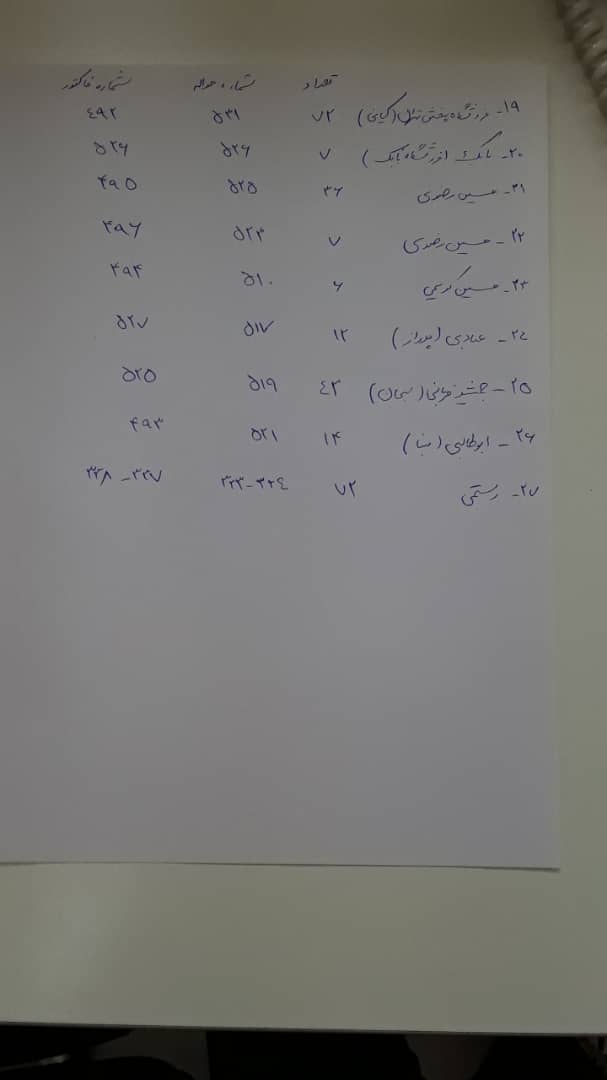 تعداد شماره حواله شماره فاکتور
۱۹- فروشگاه پخش (کیانی) ۷۲ ۵۳۱ ٤۹۲
۲۰- بابک (فروشگاه بابک) ۷ ۵۲۶ ۵۲۶
۲۱- حسین رضوی ۳۶ ۵۲۵ ۴۹۵
۲۲- حسین رضوی ۷ ۵۲۳ ۴۹۶
۲۳- حسین کرمی ۶ ۵۱۰ ۴۹۴
۲٤- عبادی ۱۲ ۵۱۷ ۵۲۷
۲۵- جمشید (سبحان) ٤۳ ۵۱۹ ۵۲۵
۲۶- ابوطالبی ۱۴ ۵۲۱ ۴۹۳
۲۷- رستمی ۷۲ ۳۲۳-۳۲٤ ۳۳۷-۳۳۸